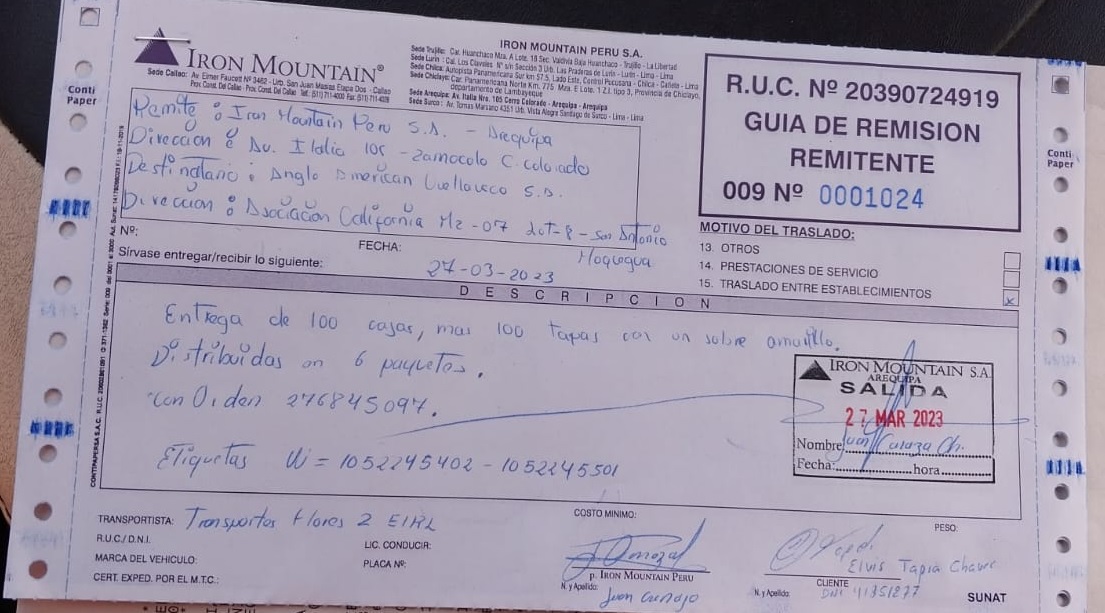 IRON MOUNTAIN®
Sede Callao: Av. Elmer Faucett Nº 3462 - Urb. San Juan Masías Etapa Dos - Callao
Prov. Const. Del Callao - Prov. Const. Del Callao Telf.: (511) 711-4000 Fax: (511) 711-4028
IRON MOUNTAIN PERU S.A.
Sede Trujillo: Car. Huanchaco Mza. A Lote. 18 Sec. Valdivia Baja Huanchaco - Trujillo - La Libertad
Sede Lurin: Cal. Los Claveles Nº s/n Sección 3 Urb. Las Praderas de Lurin - Lurin - Lima - Lima
Sede Chilca: Autopista Panamericana Sur km 57.5, Lado Este, Control Pucusana - Chilca - Cañete - Lima
Sede Chiclayo: Car. Panamericana Norte Km. 775 Mza. E Lote. 1 Z.I. tipo 3, Provincia de Chiclayo,
departamento de Lambayeque
Sede Arequipa: Av. Italia Nro. 105 Cerro Colorado - Arequipa - Arequipa
Sede Surco: Av. Tomas Marsano 4351 Urb. Vista Alegre Santiago de Surco - Lima - Lima
R.U.C. Nº 20390724919
GUIA DE REMISION
REMITENTE
009 Nº 0001024
Conti
Paper
Conti
Paper
Remite : Iron Mountain Peru S.A. - Arequipa
Dirección : Av. Italia 105 - Zamacola C. colorado
Destinatario : Anglo American Quellaveco S.A.
Dirección : Asociacion California Mz-07 Lot-8 - San Antonio
Moquegua
Nº:
FECHA:
27-03-2023
Sírvase entregar/recibir lo siguiente:
MOTIVO DEL TRASLADO:
13. OTROS
14. PRESTACIONES DE SERVICIO
15. TRASLADO ENTRE ESTABLECIMIENTOS x
DESCRIPCION
Entrega de 100 cajas, mas 100 tapas con un sobre amarillo.
Distribuidas en 6 paquetes.
con Orden 276845097.
Etiquetas Ui = 1052245402 - 1052245501
IRON MOUNTAIN S.A.
AREQUIPA
SALIDA
27 MAR 2023
Nombre
Fecha: hora
TRANSPORTISTA: Transportes Flores 2 EIRL
R.U.C./ D.N.I.
MARCA DEL VEHICULO:
CERT. EXPED. POR EL M.T.C.:
LIC. CONDUCIR:
PLACA Nº:
COSTO MINIMO:
p. IRON MOUNTAIN PERU
N. y Apellido: Juan
PESO:
Elvis Tapia Chavez
CLIENTE
N. y Apellido: DNI 41351277
SUNAT